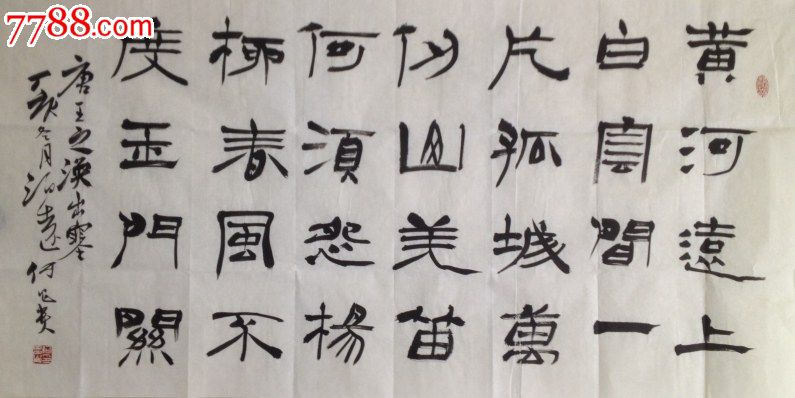 7788.com
黄河遠上
白雲間一
片孤城萬
仞山羌笛
何須怨楊
柳春風不
度玉門關
唐王之渙出塞
丁亥冬月